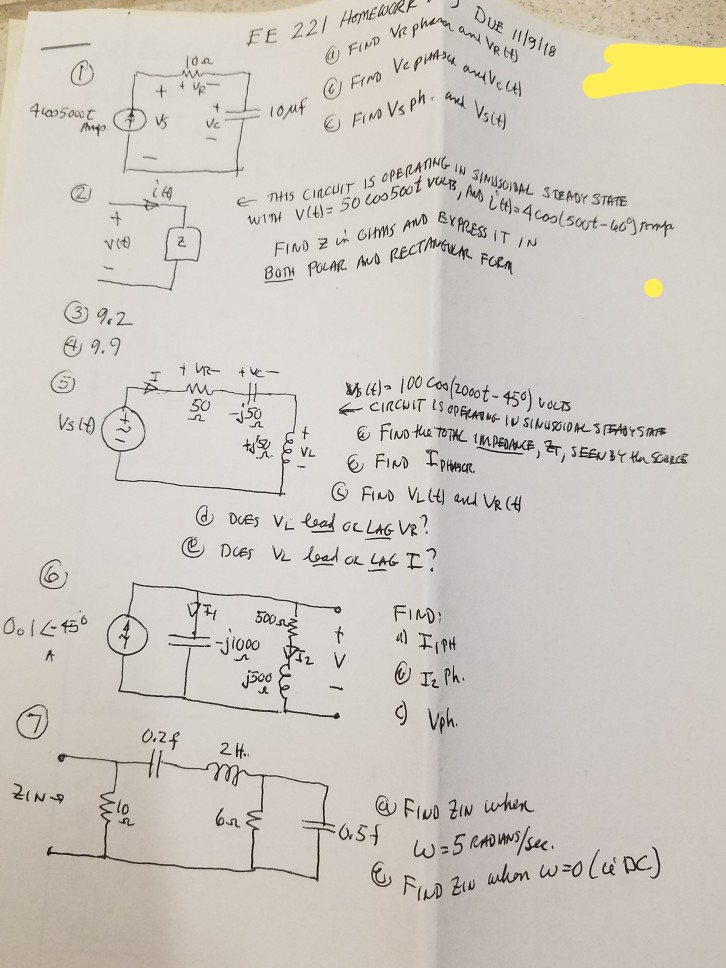 EE 221 HOMEWORK DUE 11/9/18
① 10Ω
+ VR −
4cos5000t Amp
+ VS −
+ VC −
10μf
ⓐ FIND VR phasor and VR(t)
ⓑ FIND VC PHASOR and VC(t)
ⓒ FIND VS ph. and VS(t)
② i(t)
+ V(t) −
Z
← THIS CIRCUIT IS OPERATING IN SINUSOIDAL STEADY STATE
WITH V(t)= 50 cos500t VOLTS, AND i(t)=4cos(500t-60°) Amp
FIND Z in OHMS AND EXPRESS IT IN
BOTH POLAR AND RECTANGULAR FORM
③ 9.2
④ 9.9
⑤ I + VR − + VC −
50 Ω -j50 Ω
VS(t)
+j50 Ω + VL −
VS(t)= 100 cos(2000t - 45°) VOLTS
← CIRCUIT IS OPERATING IN SINUSOIDAL STEADY STATE
ⓐ FIND the TOTAL IMPEDANCE, ZT, SEEN BY the SOURCE
ⓑ FIND I PHASOR.
ⓒ FIND VL(t) and VR(t)
ⓓ DOES VL lead OR LAG VR?
ⓔ DOES VL lead OR LAG I?
⑥
0.1∠-45° A
I1
-j1000 Ω
500Ω
I2
j500 Ω
+ V −
FIND:
a) I1PH
ⓑ I2 Ph.
c) Vph.
⑦
0.2f 2H.
ZIN →
10 Ω
6Ω
0.5f
ⓐ FIND ZIN when
ω=5 RADIANS/sec.
ⓑ FIND ZIN when ω=0 (ie DC)